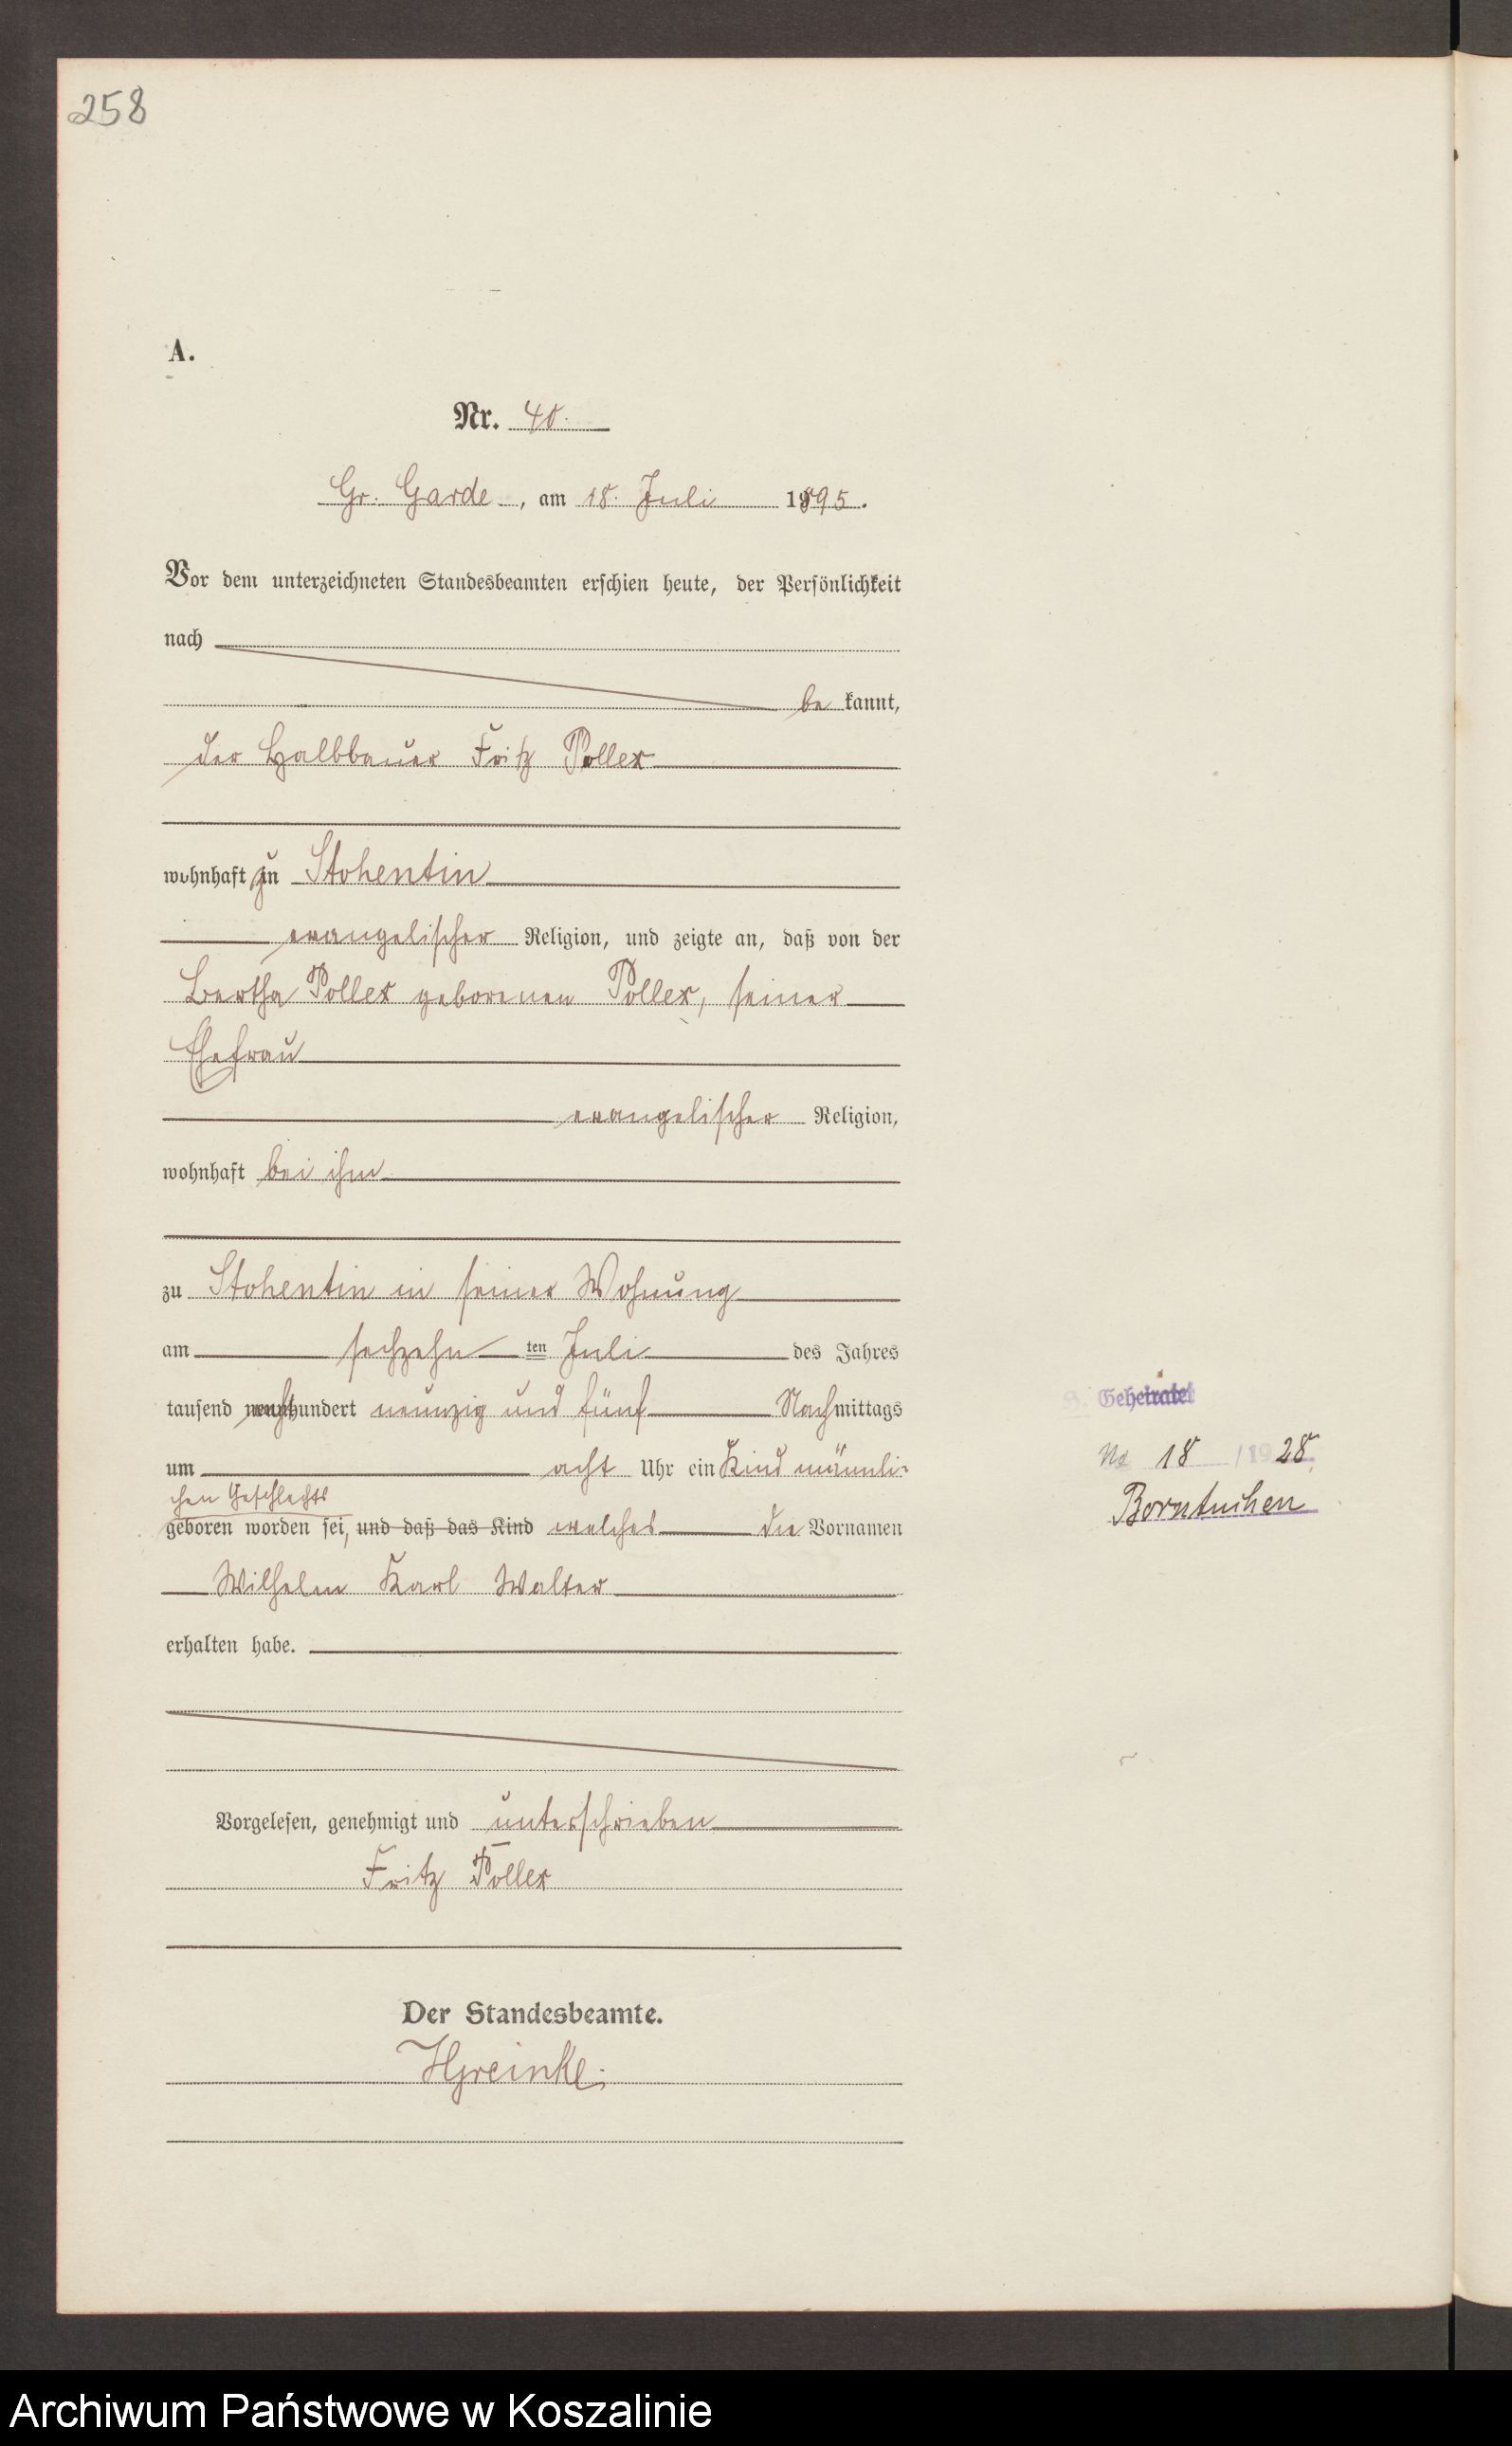 258
A.
Nr. 40.
Gr. Garde, am 18. Juli 1895.
Vor dem unterzeichneten Standesbeamten erschien heute, der Persönlichkeit
nach
be kannt,
der Halbbauer Fritz Pollex
wohnhaft zu Stohentin
evangelischer Religion, und zeigte an, daß von der
Bertha Pollex geborenen Pollex, seiner
Ehefrau
evangelischer Religion,
wohnhaft bei ihm
zu Stohentin in seiner Wohnung
am sechzehn ten Juli des Jahres
tausend achthundert neunzig und fünf Nachmittags
um acht Uhr ein Kind männli-
chen Geschlechts
geboren worden sei, und daß das Kind welches die Vornamen
Wilhelm Karl Walter
erhalten habe.
Vorgelesen, genehmigt und unterschrieben
Fritz Pollex
Der Standesbeamte.
HGreinke.
Geheiratet
No 18 /1928.
Borntuchen
Archiwum Państwowe w Koszalinie